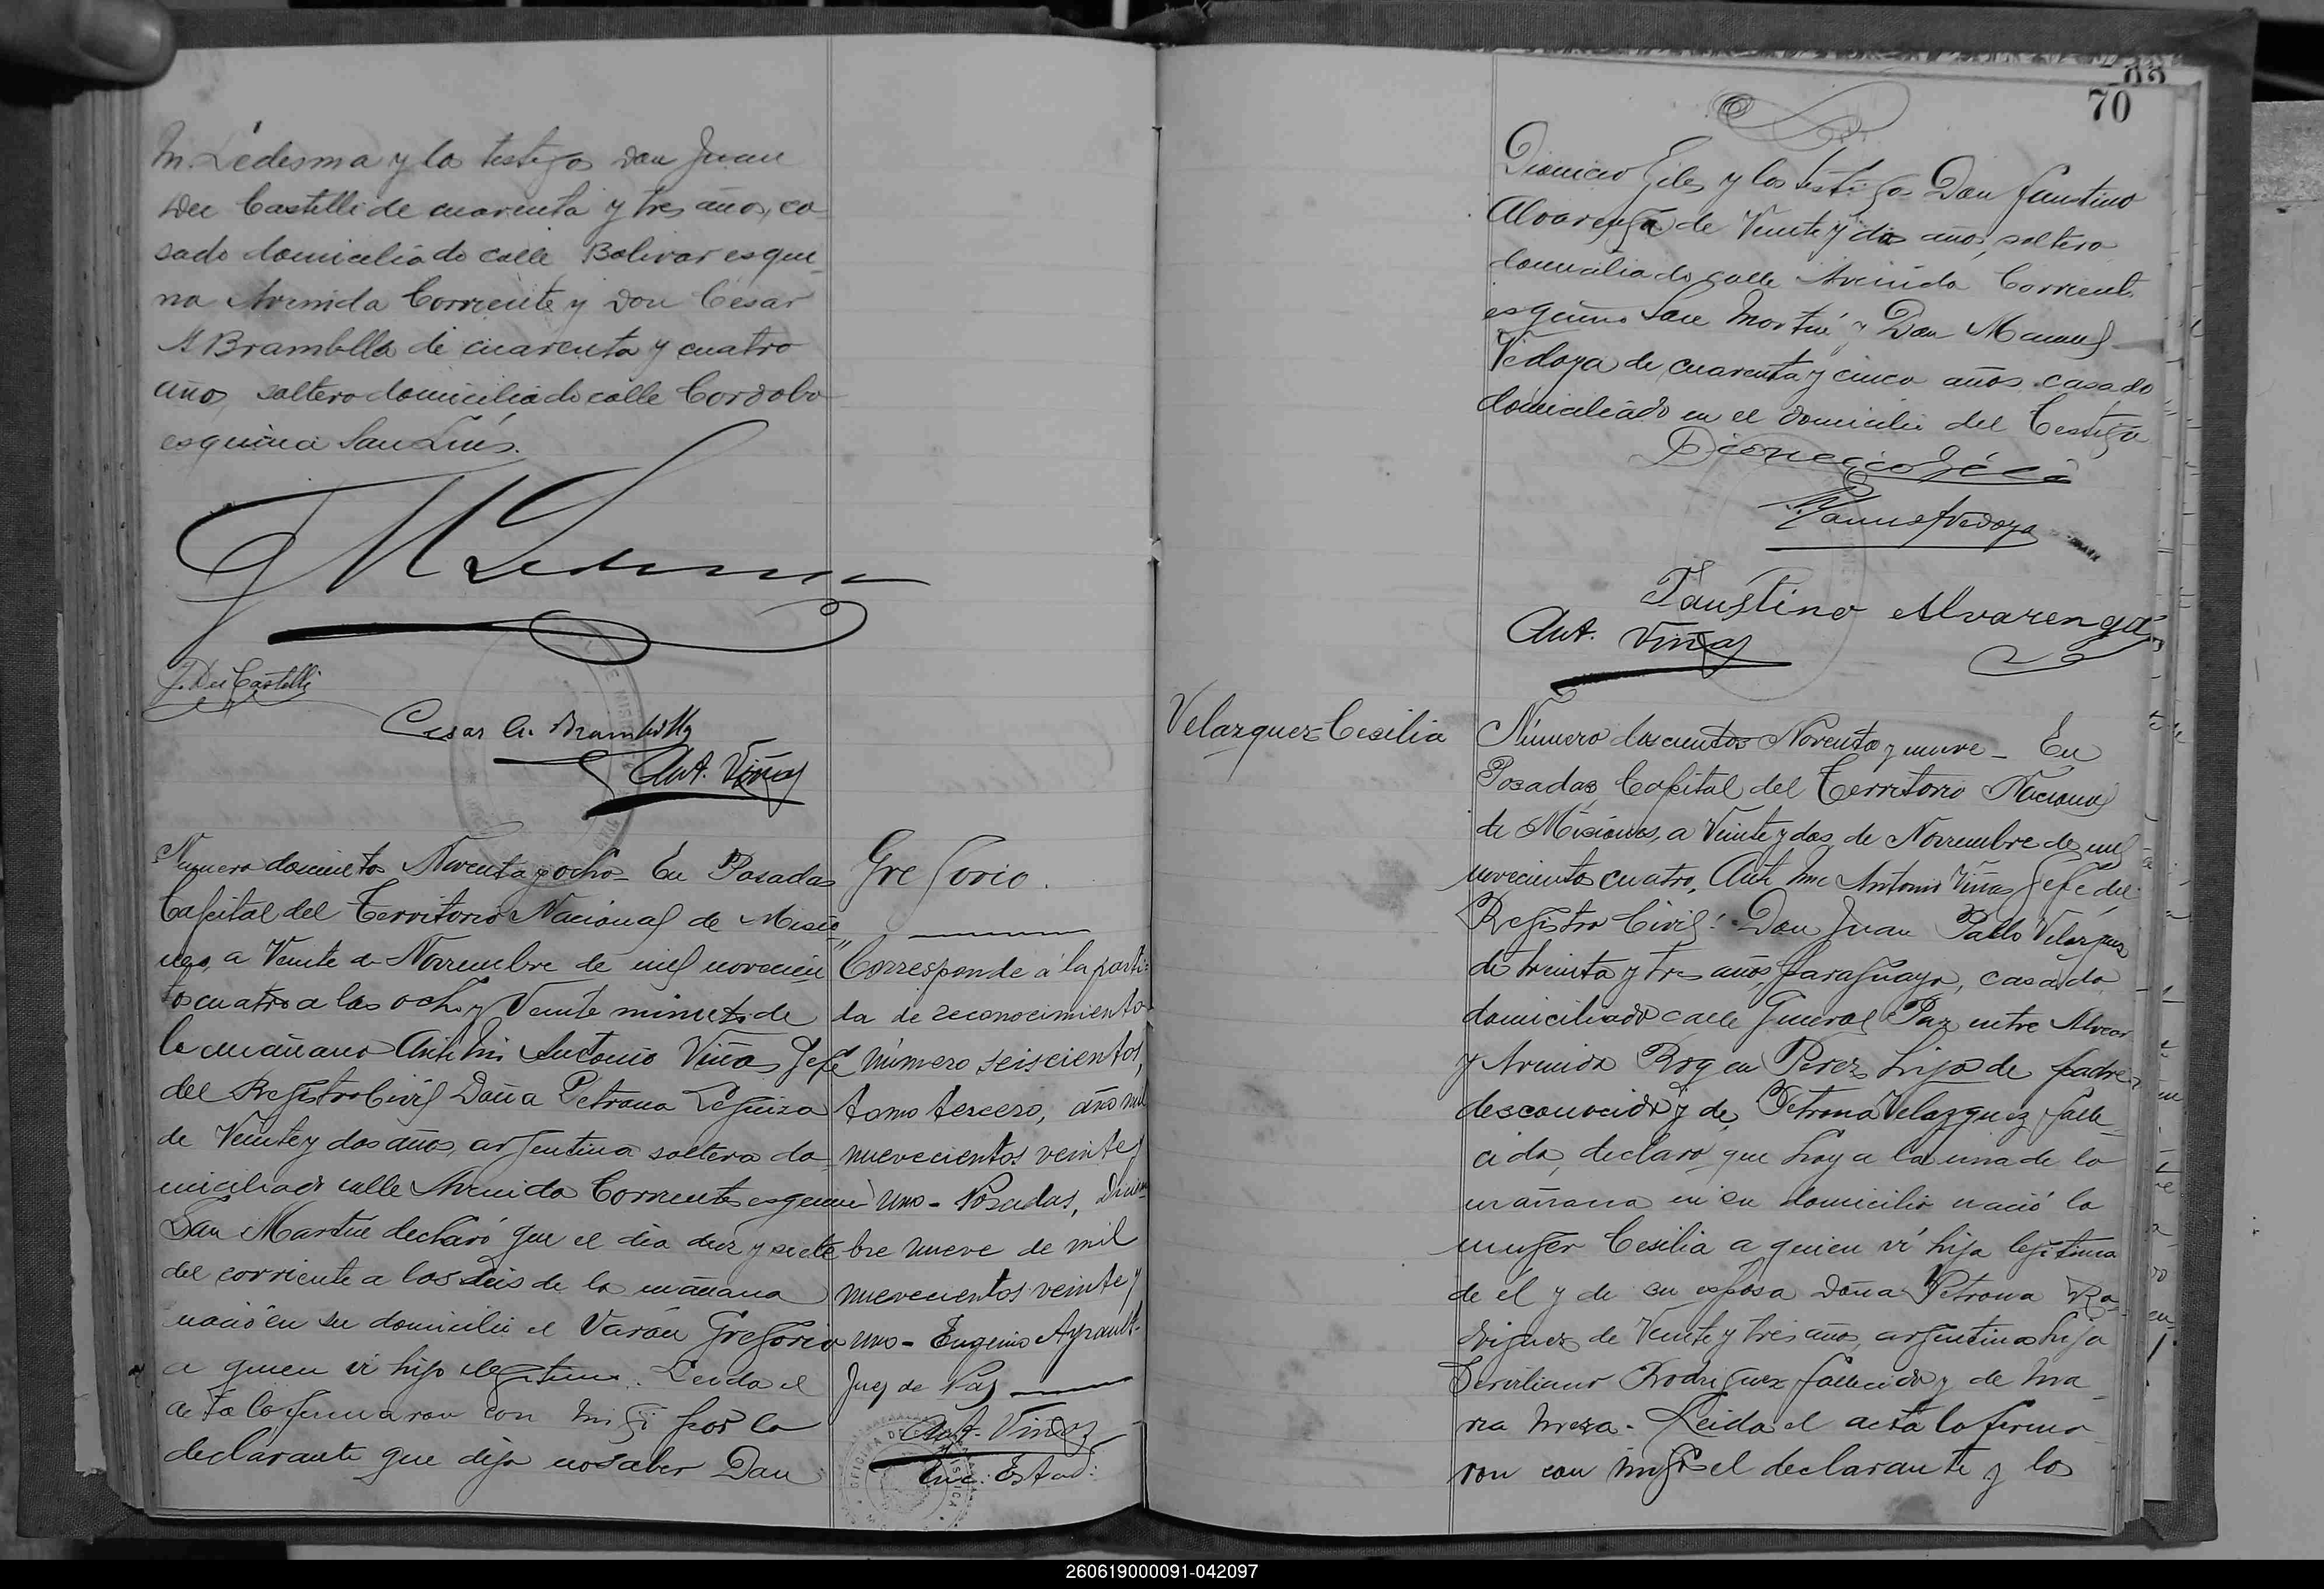 M. Ledesma y los testigos Don Juan
Dei Castelli de cuarenta y tres años, ca
sado domiciliado calle Bolivar esqui
na Avenida Corriente y Don César
A Brambilla de cuarenta y cuatro
años, soltero domiciliado calle Cordoba
esquina San Luis.
M Ledesma
J. Dei Castelli
Cesar A. Brambilla
Ant. Viñas
Numero doscientos Noventa y ocho - En Posadas
Capital del Territorio Nacional de Misio
nes, a Veinte de Noviembre de mil novecien
tos cuatro a las ocho y Veinte minutos de
la mañana Ante mi Antonio Viñas Jefe
del Registro Civil Doña Petrona Leguiza
de Veinte y dos años, argentina soltera do
miciliada calle Avenida Corrientes esquina
San Martin declaró que el dia diez y siete
del corriente a las seis de la mañana
nació en su domicilio el Varón Gregorio
a quien vi hijo ilegitimo. Leida el
acta la firmaron con migo por la
declarante que dijo no saber Don
Gregorio.
Corresponde á la parti-
da de reconocimiento
número seiscientos,
tomo tercero, año mil
nuevecientos veinte y
uno - Posadas, Diciem
bre nueve de mil
nuevecientos veinte y
uno - Eugenio Ayrault-
Juez de Paz
Ant. Viñas
Enc. Estad:
OFICINA DE ESTADISTICA
70
Dionicio Giles y los testigos Don Faustino
Alvarenga de Veinte y dos años, soltero
domiciliado calle Avenida Corrient
esquina San Martin y Don Manuel
Vedoya de cuarenta y cinco años casado
domiciliado en el domicilio del Testigo
Dionicio Giles
Manuel Vedoya
Faustino Alvarenga
Ant. Viñas
Velazquez Cesilia
Número doscientos Noventa y nueve - En
Posadas Capital del Territorio Nacional
de Misiones, a Veinte y dos de Noviembre de mil
novecientos cuatro, Ante mi Antonio Viñas Jefe del
Registro Civil: Don Juan Pablo Velazquez
de treinta y tres años, paraguayo, casado
domiciliado calle General Paz entre Alvear
y Avenida Roque Perez hijo de padre
desconocido y de Petrona Velazquez falle
cida, declaró que hoy a la una de la
mañana en su domicilio nació la
mujer Cesilia a quien vi hija legitima
de él y de su esposa Doña Petrona Ro
driguez de Veinte y tres años, argentina hija
Serviliano Rodriguez fallecido y de Ma
ria Meza - Leida el acta la firma
ron con migo el declarante y los
260619000091-042097